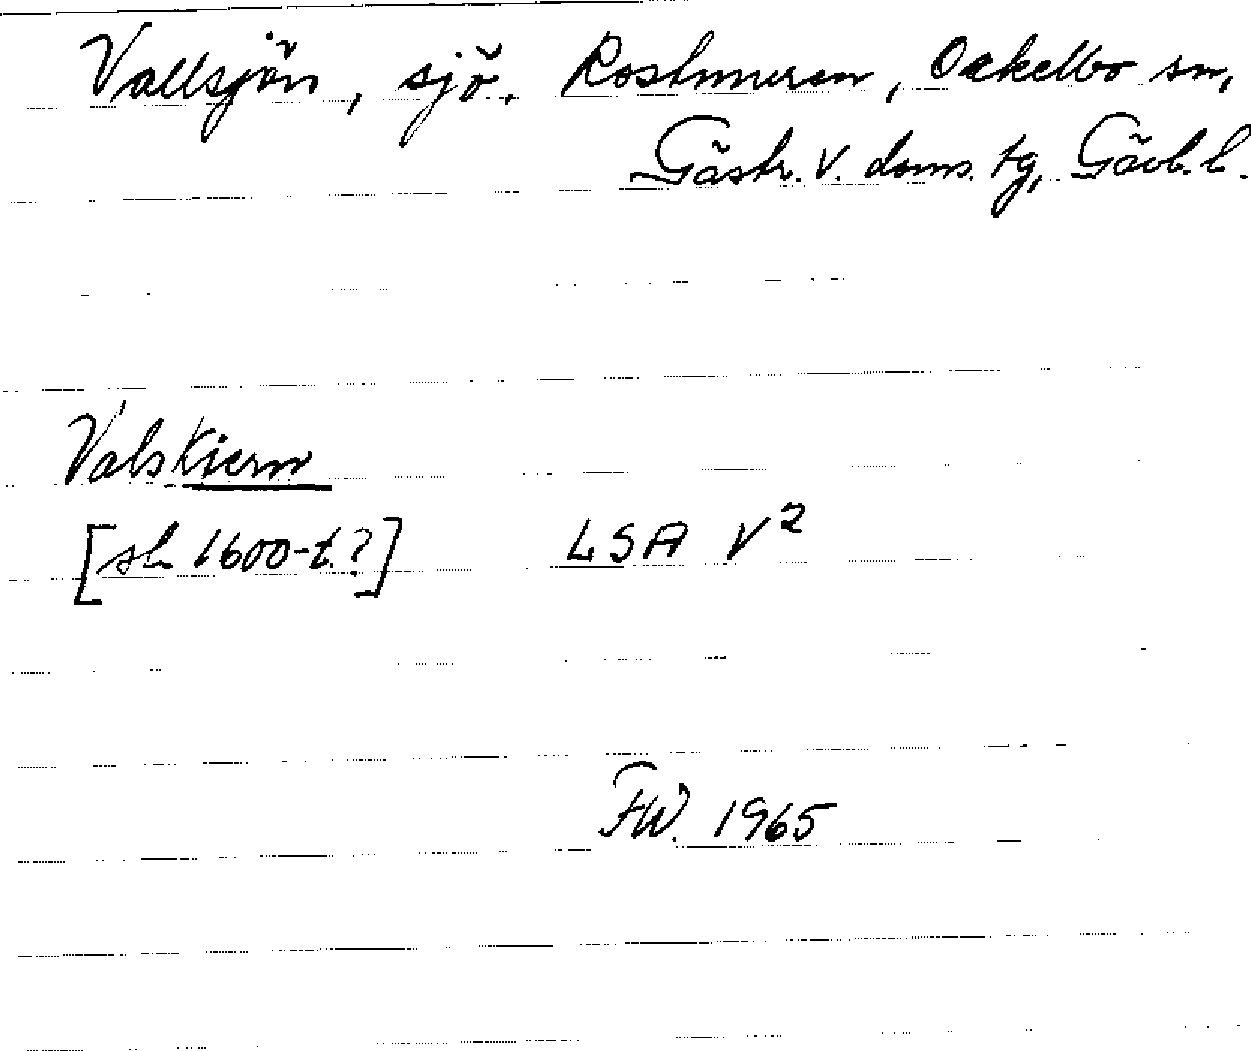 Vallsjön, sjö. Rostmuren, Ockelbo sn,
Gästr. V. doms. tg, Gävb. l.
Valskiern
[sl. 1600-t.?] LSA V²
FW. 1965